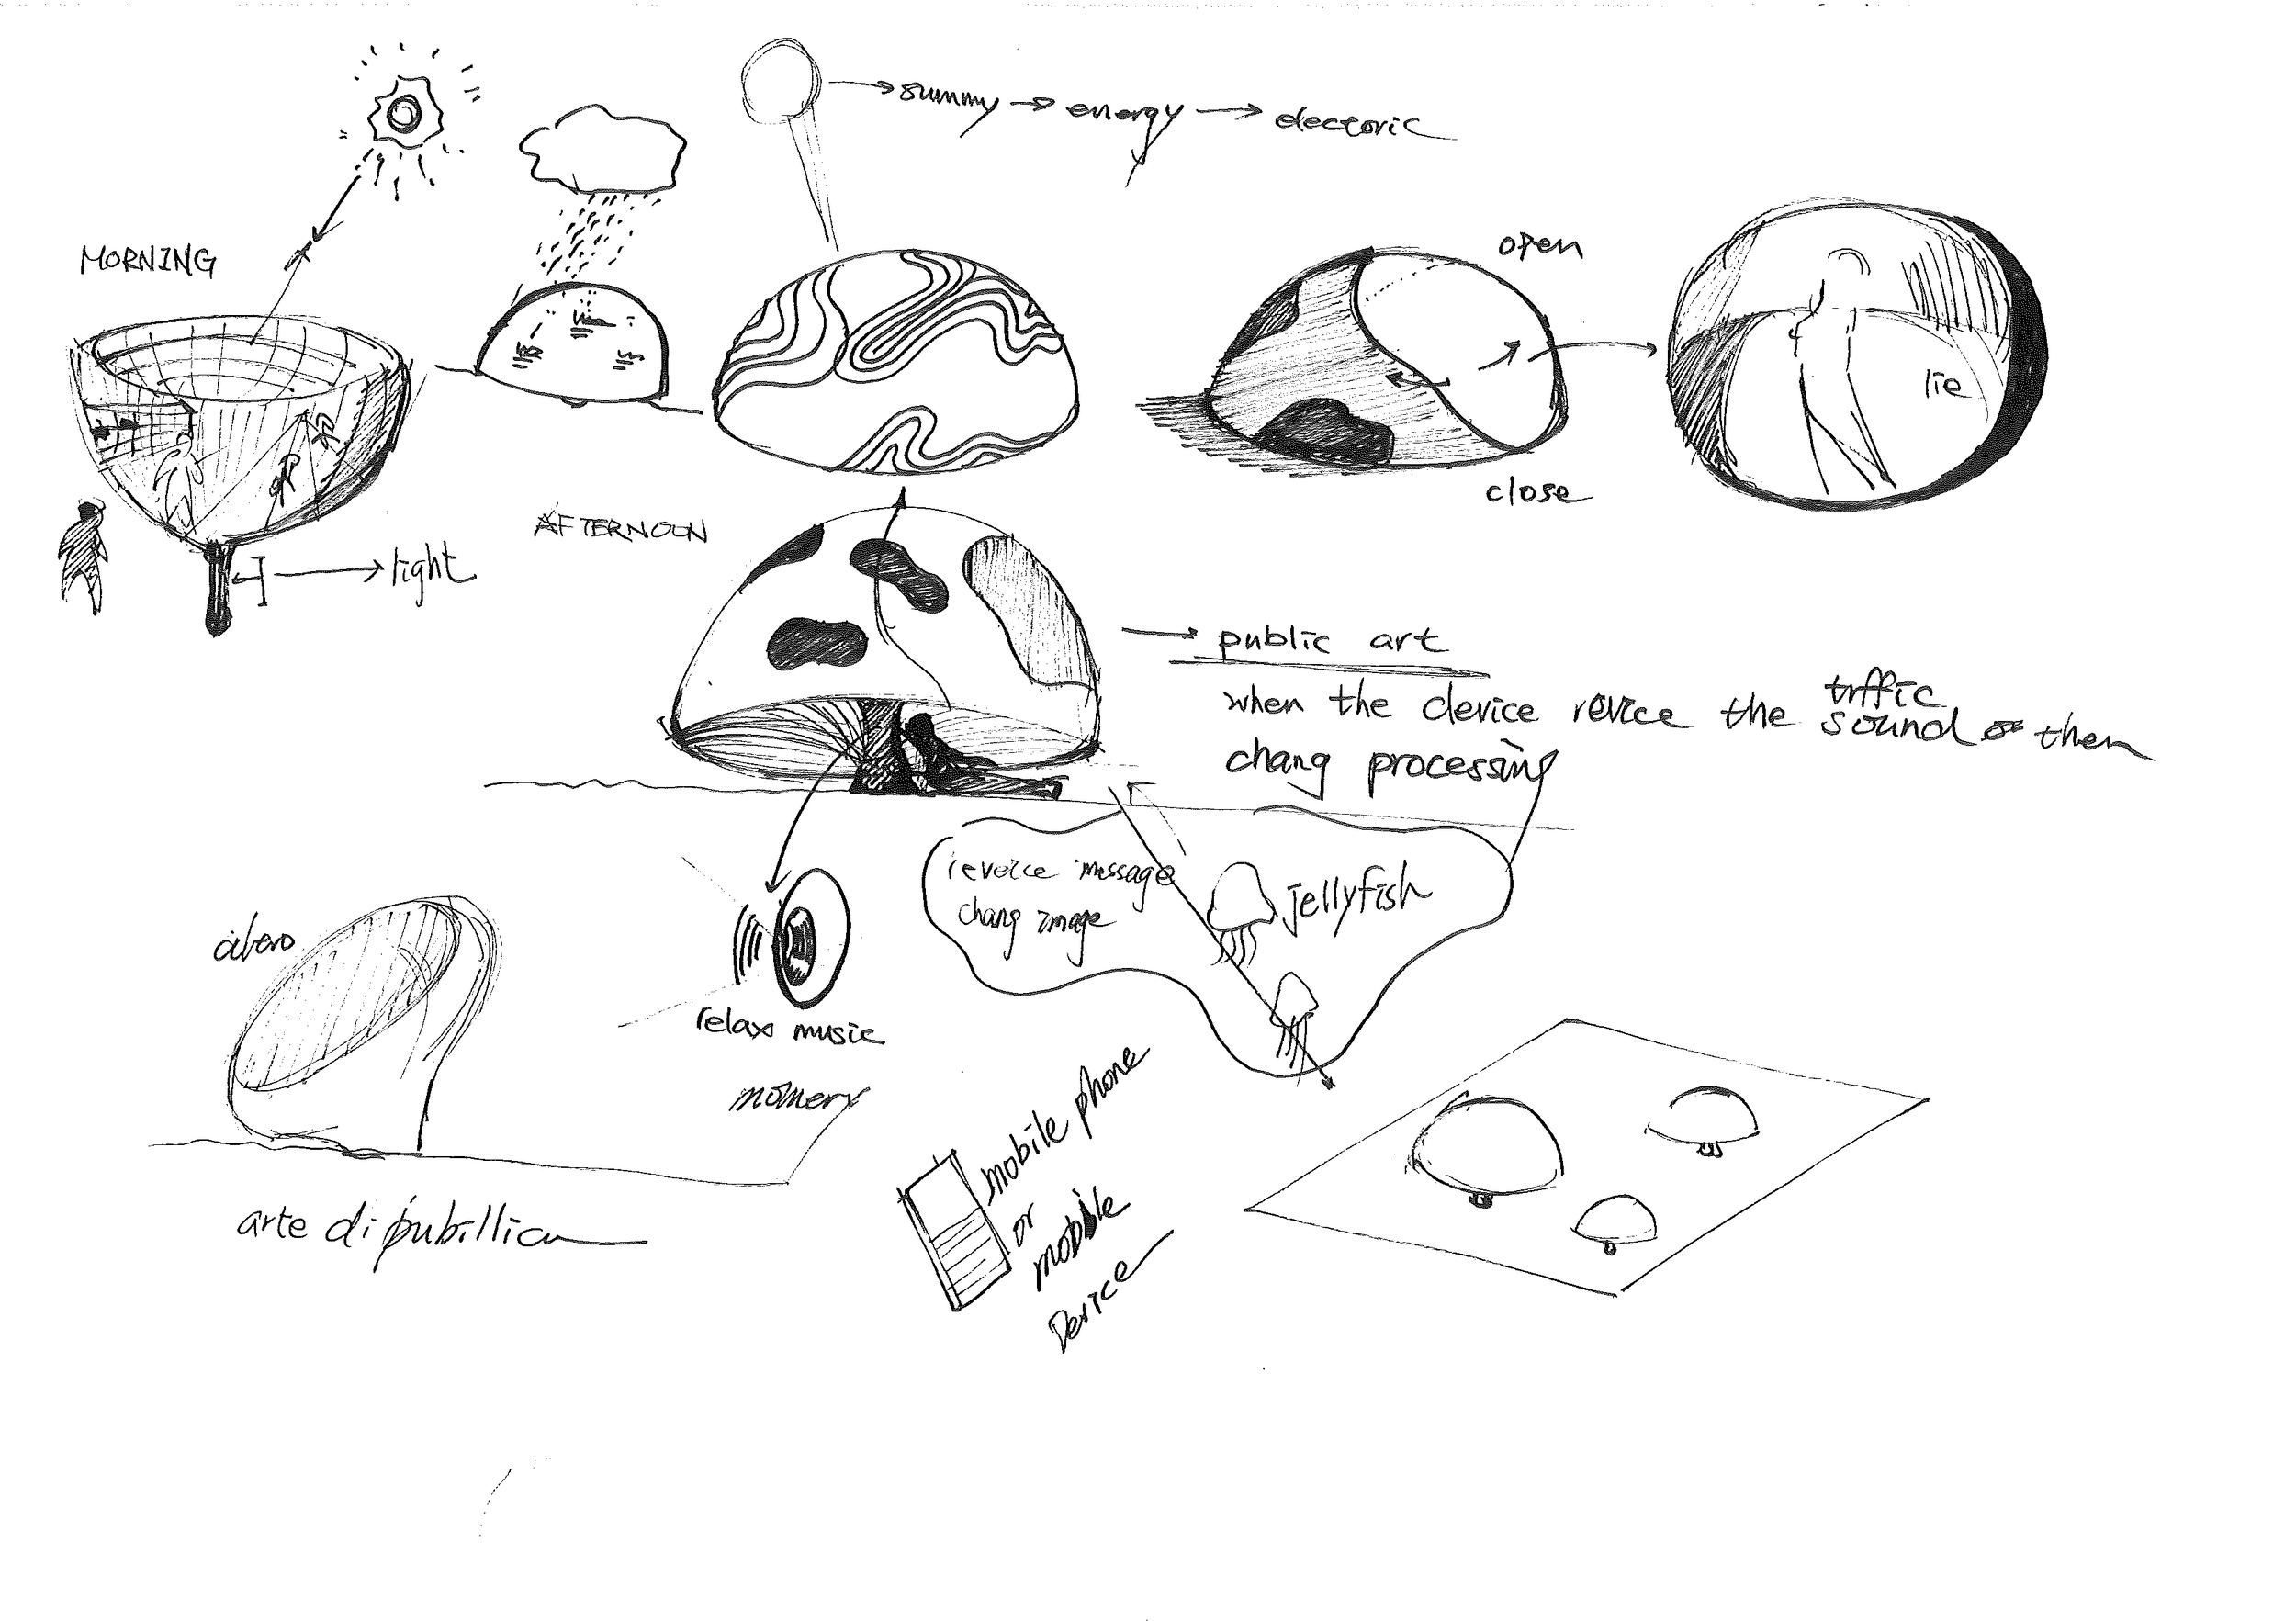 summy → energy → electoric
MORNING
open
lie
close
AFTERNOON
light
public art
when the device revice the traffic sound or them
chang processing
message
chang image
jellyfish
relax music
momery
mobile phone
or
mobile
Device
arte di pubillica